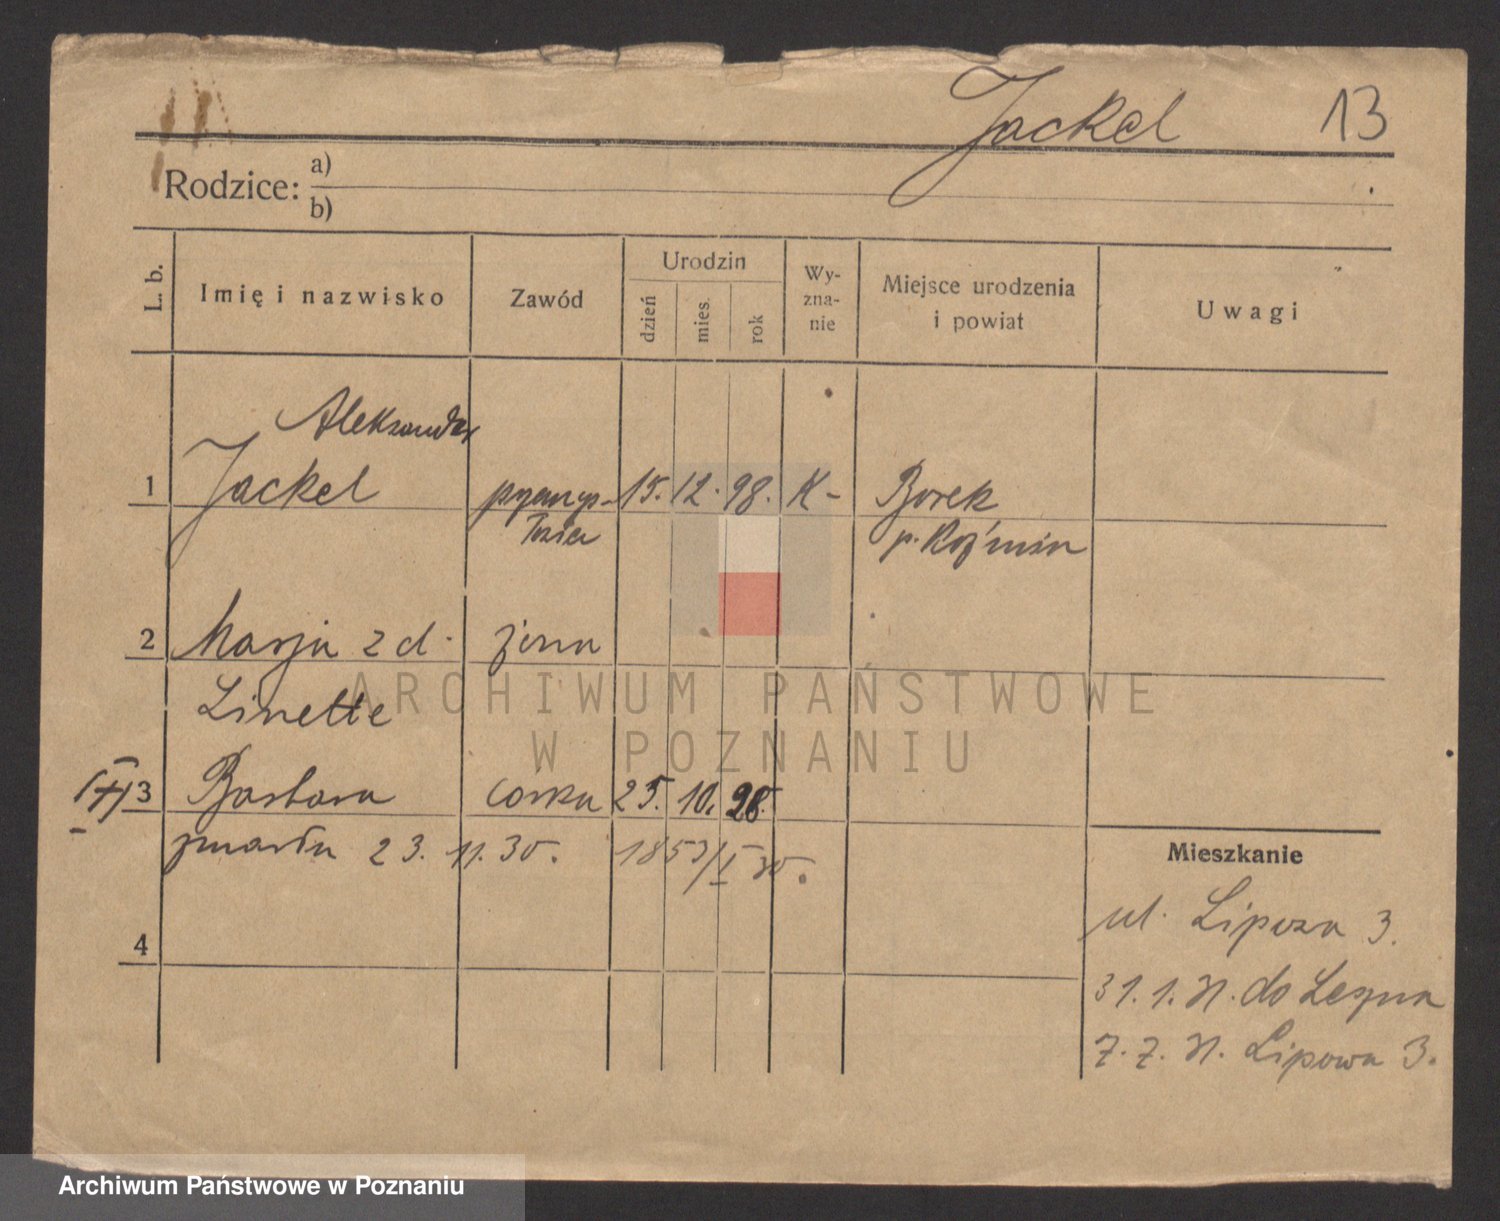 Jackel 13
Rodzice: a)
b)
L. b.
Imię i nazwisko
Zawód
Urodzin
dzień
mies.
rok
Wy-
zna-
nie
Miejsce urodzenia
i powiat
Uwagi
Aleksander
1 Jackel 15. 12. 98. K- Borek
p. Koźmin
2 Marja z d. żona
Linette
3 Barbara córka 25. 10. 28.
zmarła 23. 11. 30. 1853/I 30.
Mieszkanie
ul. Lipowa 3.
4
31. 1. 31. do Leszna
7. 7. 31. Lipowa 3.
ARCHIWUM PAŃSTWOWE
W POZNANIU
Archiwum Państwowe w Poznaniu